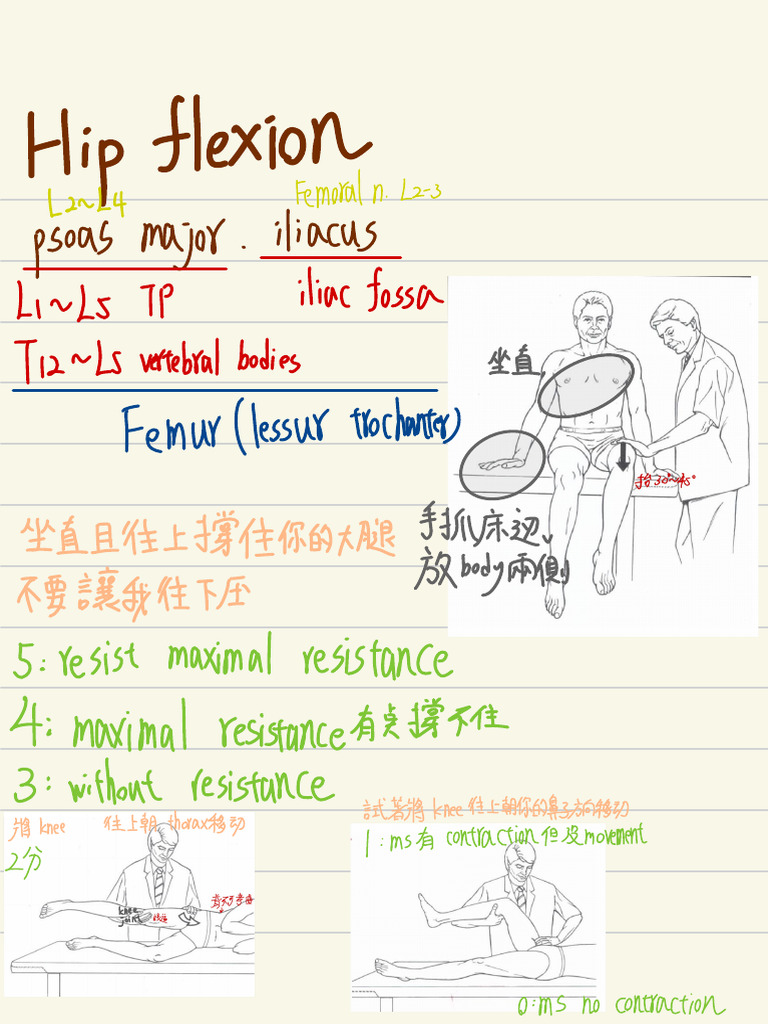 Hip flexion
L2~L4
Femoral n. L2-3
psoas major. iliacus
L1~L5 TP
iliac fossa
T12~L5 vertebral bodies
Femur (lessur trochanter)
坐直
抬30°~45°
手抓床边、
放body兩側
坐直且往上撐住你的大腿
不要讓我往下压
5: resist maximal resistance
4: maximal resistance 有点撐不住
3: without resistance
將 knee 往上朝 thorax移动
2分
knee
joint
試著將 knee 往上朝你的鼻子方向移动
1: ms有 contraction但没movement
0: ms no contraction